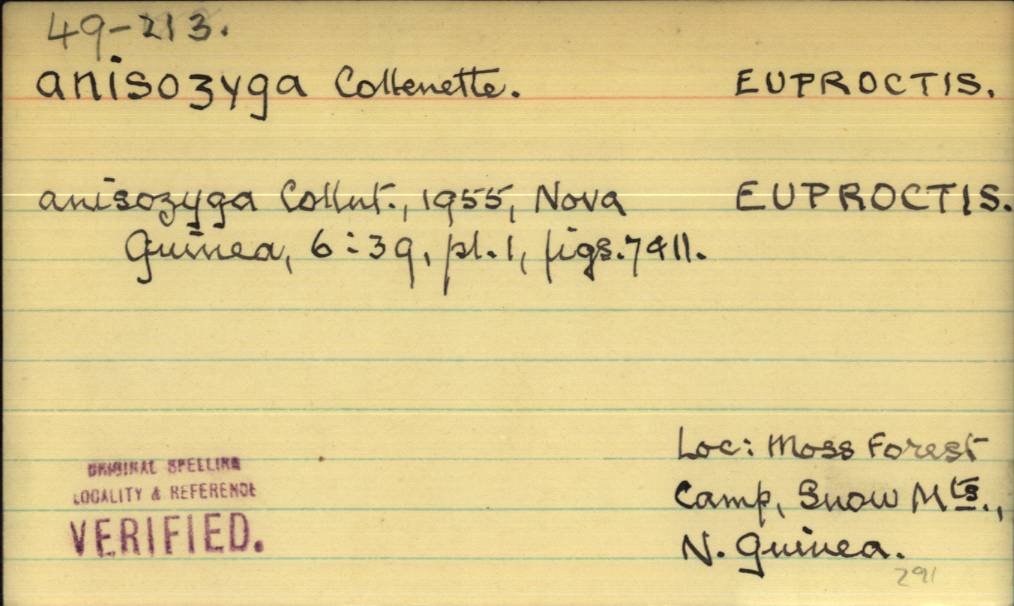 49-213.
anisozyga Collenette. EUPROCTIS.
anisozyga Collnt., 1955, Nova EUPROCTIS.
Guinea, 6:39, pl.1, figs.7&11.
Loc: Moss Forest
Camp, Snow Mts.,
N. Guinea.
291
ORIGINAL SPELLING
LOCALITY & REFERENCE
VERIFIED.